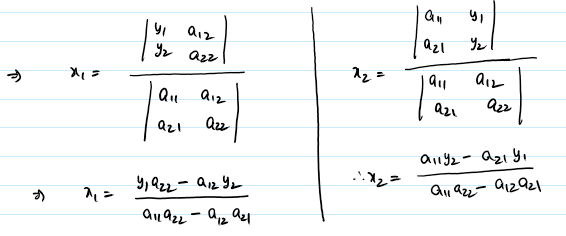 ⇒ x₁ = | y₁ a₁₂ ; y₂ a₂₂ | / | a₁₁ a₁₂ ; a₂₁ a₂₂ |
⇒ x₁ = (y₁a₂₂ − a₁₂y₂) / (a₁₁a₂₂ − a₁₂a₂₁)
x₂ = | a₁₁ y₁ ; a₂₁ y₂ | / | a₁₁ a₁₂ ; a₂₁ a₂₂ |
∴ x₂ = (a₁₁y₂ − a₂₁y₁) / (a₁₁a₂₂ − a₁₂a₂₁)